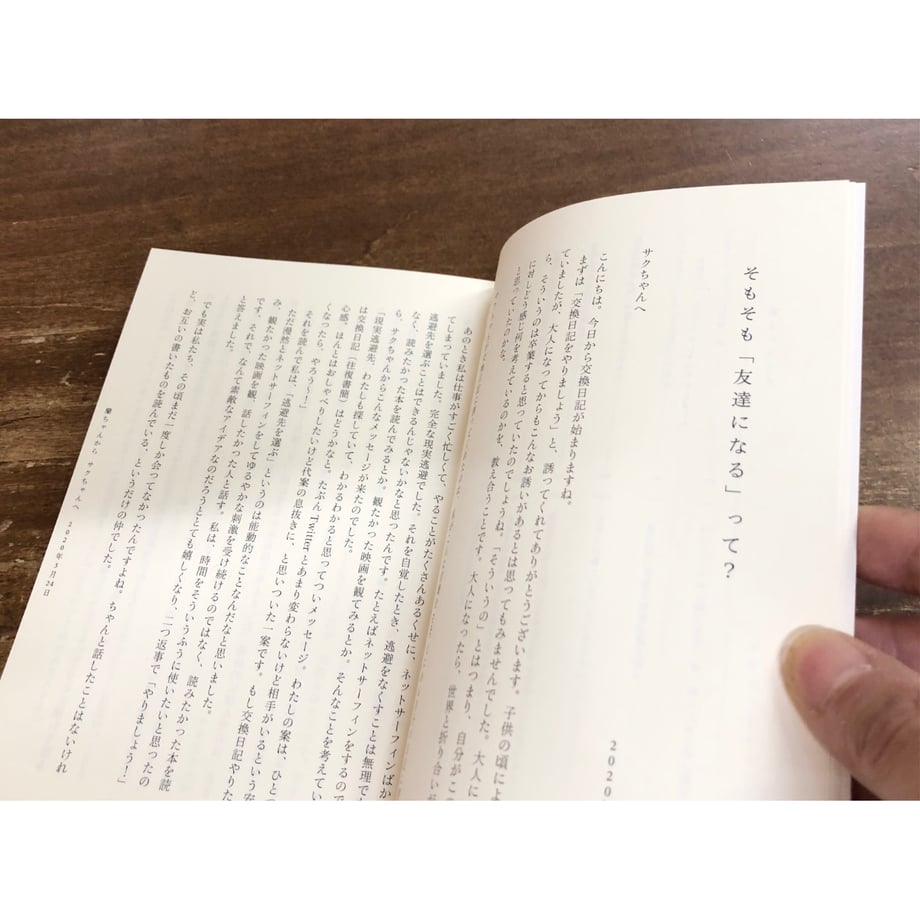 そもそも「友達になる」って?
2020
サクちゃんへ
こんにちは。今日から交換日記が始まりますね。
まずは「交換日記をやりましょう」と、誘ってくれてありがとうございます。子供の頃によ
ていましたが、大人になってからもこんなお誘いがあるとは思ってもみませんでした。大人に
ら、そういうのは卒業すると思っていたのでしょうね。「そういうの」とはつまり、自分がこの
に対しどう感じ何を考えているのかを、教え合うことです。大人になったら、世界と折り合い
と思っていたのかな。
あのとき私は仕事がすごく忙しくて、やることがたくさんあるくせに、ネットサーフィンばか
てしまっていました。完全な現実逃避でした。それを自覚したとき、逃避をなくすことは無理で
逃避先を選ぶことはできるんじゃないかなと思ったんです。たとえばネットサーフィンをするので
なく、読みたかった本を読んでみるとか。観たかった映画を観てみるとか。そんなことを考えてい
ら、サクちゃんからこんなメッセージが来たのでした。
「現実逃避先、わたしも探していて、わかるわかると思ってついメッセージ。わたしの案は、ひとつ
は交換日記(往復書簡)はどうかなと。たぶんTwitterとあまり変わらないけど相手がいるという安
心感、ほんとはおしゃべりしたいけど代案の息抜きに、と思いついた一案です。もし交換日記やりた
くなったら、やろうし!」
それを読んで私は、「逃避先を選ぶ」というのは能動的なことなんだなと思いました。
ただ漫然とネットサーフィンをしてゆるやかな刺激を受け続けるのではなく、読みたかった本を読
み、観たかった映画を観、話したかった人と話す。私は、時間をそういうふうに使いたいと思ったの
です。それで、なんて素敵なアイデアなのだろうととても嬉しくなり、二つ返事で「やりましょう!」
と答えました。
でも実は私たち、その頃まだ一度しか会ってなかったんですよね。ちゃんと話したことはないけれ
ど、お互いの書いたものを読んでいる、というだけの仲でした。
蘭ちゃんから サクちゃんへ 2020年3月24日